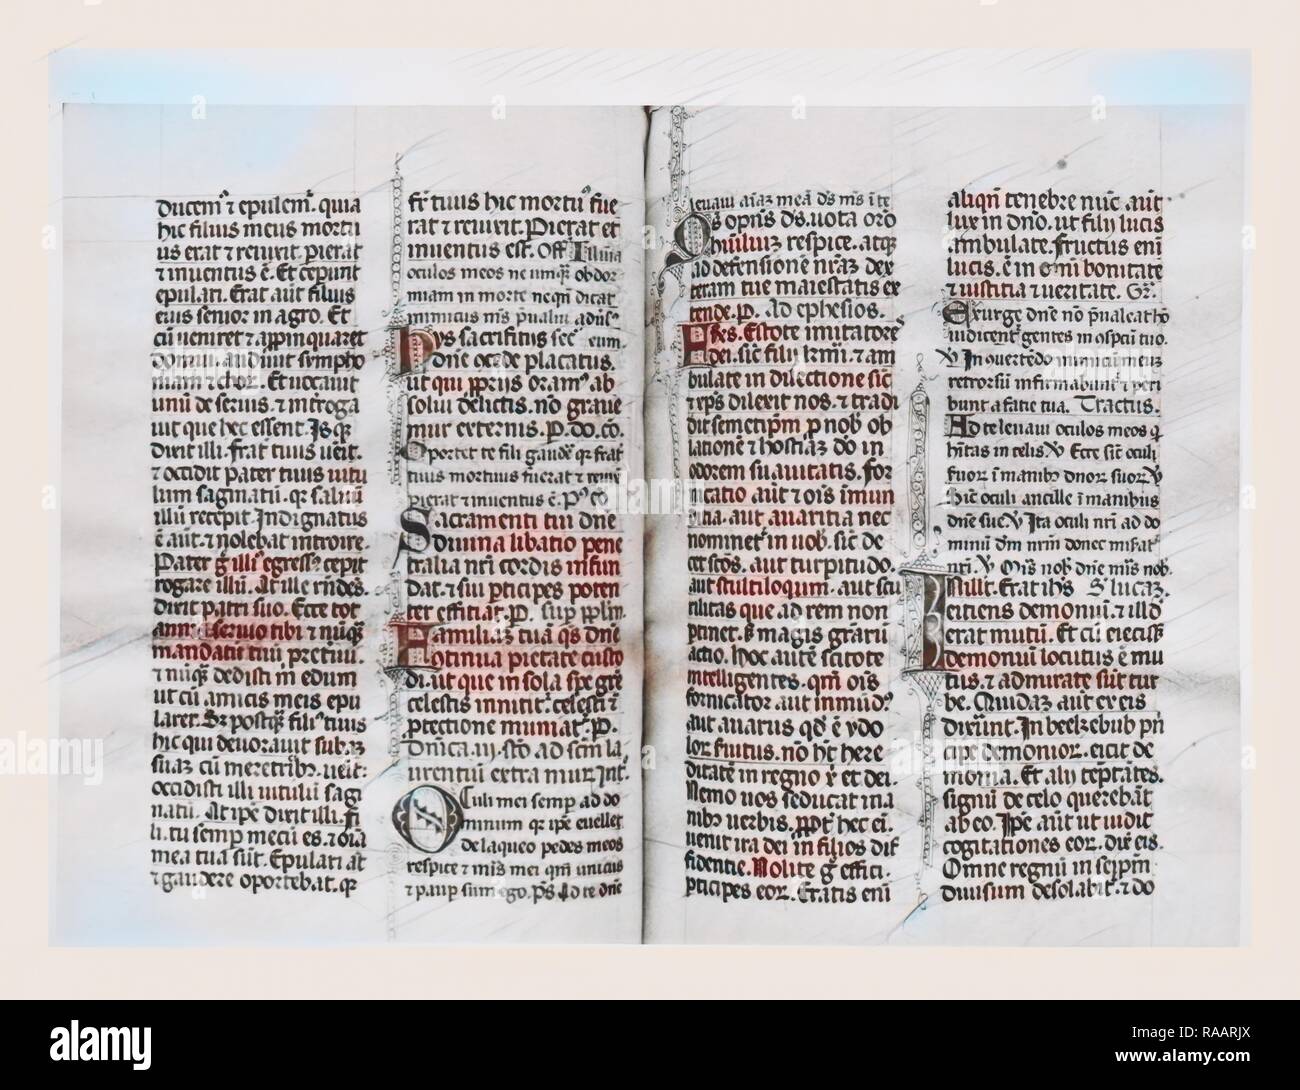 ducem⁹ ⁊ epulem⁹. quia
hic filius meus mortu
us erat ⁊ reuixit. perierat
⁊ inuentus ē. Et ceperunt
epulari. Erat aūt filius
eius senior in agro. Et
cū ueniret ⁊ appinquaret
domui. audiuit sympho
niam ⁊ chorꝝ. Et uocauit
unū de seruis. ⁊ int̄roga
uit que hec essent. Is qꝫ
dixit illi. frat̄ tuus uenit.
⁊ occidit pater tuus uitu
lum saginatū. qꝛ saluū
illū recepit. Indignatus
ē aūt. ⁊ nolebat introire.
Pater g̊ illi⁹ egress⁹ cepit
rogare illū. At ille rn̄des.
dixit patri suo. Ecce tot
annis seruio tibi ⁊ nūqꝫ
mandatū tuū preteriui.
⁊ nūqꝫ dedisti m̄ edum
ut cū amicis meis epu
larer. Sꝫ postqꝫ fili⁹ tuus
hic qui deuorauit sub.am
suaꝫ cū meretrib⁹. uenit.
occidisti illi uitulū sagi
natū. At ipē dixit illi. fi
li. tu semp̄ mecū es. ⁊ oīa
mea tua sūt. Epulari aūt
⁊ gaudere oportebat. qꝛ
fr̄ tuus hic mortu⁹ fue
rat ⁊ reuixit. Perierat et
inuentus est. Off Illuīa
oculos meos ne unqꝫ obdor
miam in morte neqn̄ dicat
inimicus m̄s p̄ualui adūs⁹
eum.
Hys sacrificiis sec̄
dn̄e cede placatus.
ut qui ꝓpriis oram⁹ ab
solui delictis. nō graue
mur externis. P. do. cō.
Oportet te fili gaudēꝫ qꝛ frat̄
tuus mortuus fuerat ⁊ reuix
perierat ⁊ inuentus ē. P⁹ cō
Sacramenti tui dn̄e
diuina libatio pene
tralia nr̄i cordis infun
dat. ⁊ sui ꝑticipes poten
ter efficiat. P. sup pplm̄.
Familiaꝫ tuā qs dn̄e
cōtinua pietate custo
di. ut que in sola spe grē
celestis innitit᷑. celesti ⁊
ꝓtectione muniat᷑. P.
Dn̄ica. iij. Stō ad scm̄ la
urentiū extra mur Int᷑.
Oculi mei semp̄ ad do
minum qꝛ ipē euellet
de laqueo pedes meos
respice ⁊ mis̄ mei qm̄ unicus
⁊ paup sum ego. p̄s Ad te dn̄e
leuaui aīaꝫ meā ds̄ ms̄ ī te
Qs opn̄s ds̄. uota oīo
huiliuꝫ respice. atqꝫ
ad defensionē nr̄aꝫ dex
teram tue maiestatis ex
tende. P. Ad ephesios.
Fr̄es. Estote imitatores
dei. sic̄ filij kr̄mi. ⁊ am
bulate in dilectione sic̄
⁊ xp̄s dilexit nos. ⁊ tradi
dit semetipm̄ p nob̄ ob
lationē ⁊ hostiaꝫ dō in
odorem suauitatis. for
nicatio aūt ⁊ oīs īmun
dicia. aut auaritia nec
nominet᷑ in uob̄. sic̄ de
cet scōs. aut turpitudo.
aut stultiloqum. aut scu
rilitas que ad rem non
ptinet. sꝫ magis graꝝ
actio. Hoc autē scitote
intelligentes. qm̄ oīs
fornicator aut inmūd⁹
aut auarus qd̄ ē ydo
loꝝ seruitus. nō ht̄ here
ditatē in regno xp̄i et dei.
Nemo uos seducat ina
nib⁹ uerbis. ꝓpt̄ hec eī.
uenit ira dei in filios dif
fidentie. Nolite g̊ effici.
ꝑticipes eoꝝ. Eratis enī
aliqn̄ tenebre nūc aūt
lux in dnō. ut filij lucis
ambulate. fructus enī
lucis. ē in om̄i bonitate
⁊ iustitia ⁊ ueritate. Gr̄.
Exurge dn̄e nō p̄ualeat hō
iudicent᷑ gentes in cspcū tuo.
℣ In uertēdo inimicū meuꝫ
retrorsū infirmabunt᷑ ⁊ peri
bunt a facie tua. Tractus.
Ad te leuaui oculos meos qͥ
hītas in celis ℣ Ecce sic̄ oculi
suoꝝ ī manib⁹ dnoꝝ suoꝝ ℣
Sic̄ oculi ancille ī manibus
dn̄e sue ℣ Ita oculi nr̄i ad do
minū dm̄ nr̄m donec misat᷑
nr̄i. ℣ Mis̄ nob̄ dn̄e mis̄ nob̄.
In illo t̄. Erat ihs̄ S̄ lucaꝫ.
eiciens demoniū. ⁊ illd̄
erat mutū. Et cū eiecisꝫ
demoniū locutus ē mu
tus. ⁊ admirate sūt tur
be. Quidaꝫ aut ex eis
dixerūt. In beelzebub pn̄
cipe demonioꝝ. eicit de
monia. Et alij tēptātes.
signū de celo querebāt
ab eo. Ipē aūt ut uidit
cogitationes eoꝝ. dix̄ eis.
Omne regnū in seipm̄
diuisum desolabit᷑. ⁊ do
alamy
Image ID: RAARJX
www.alamy.com